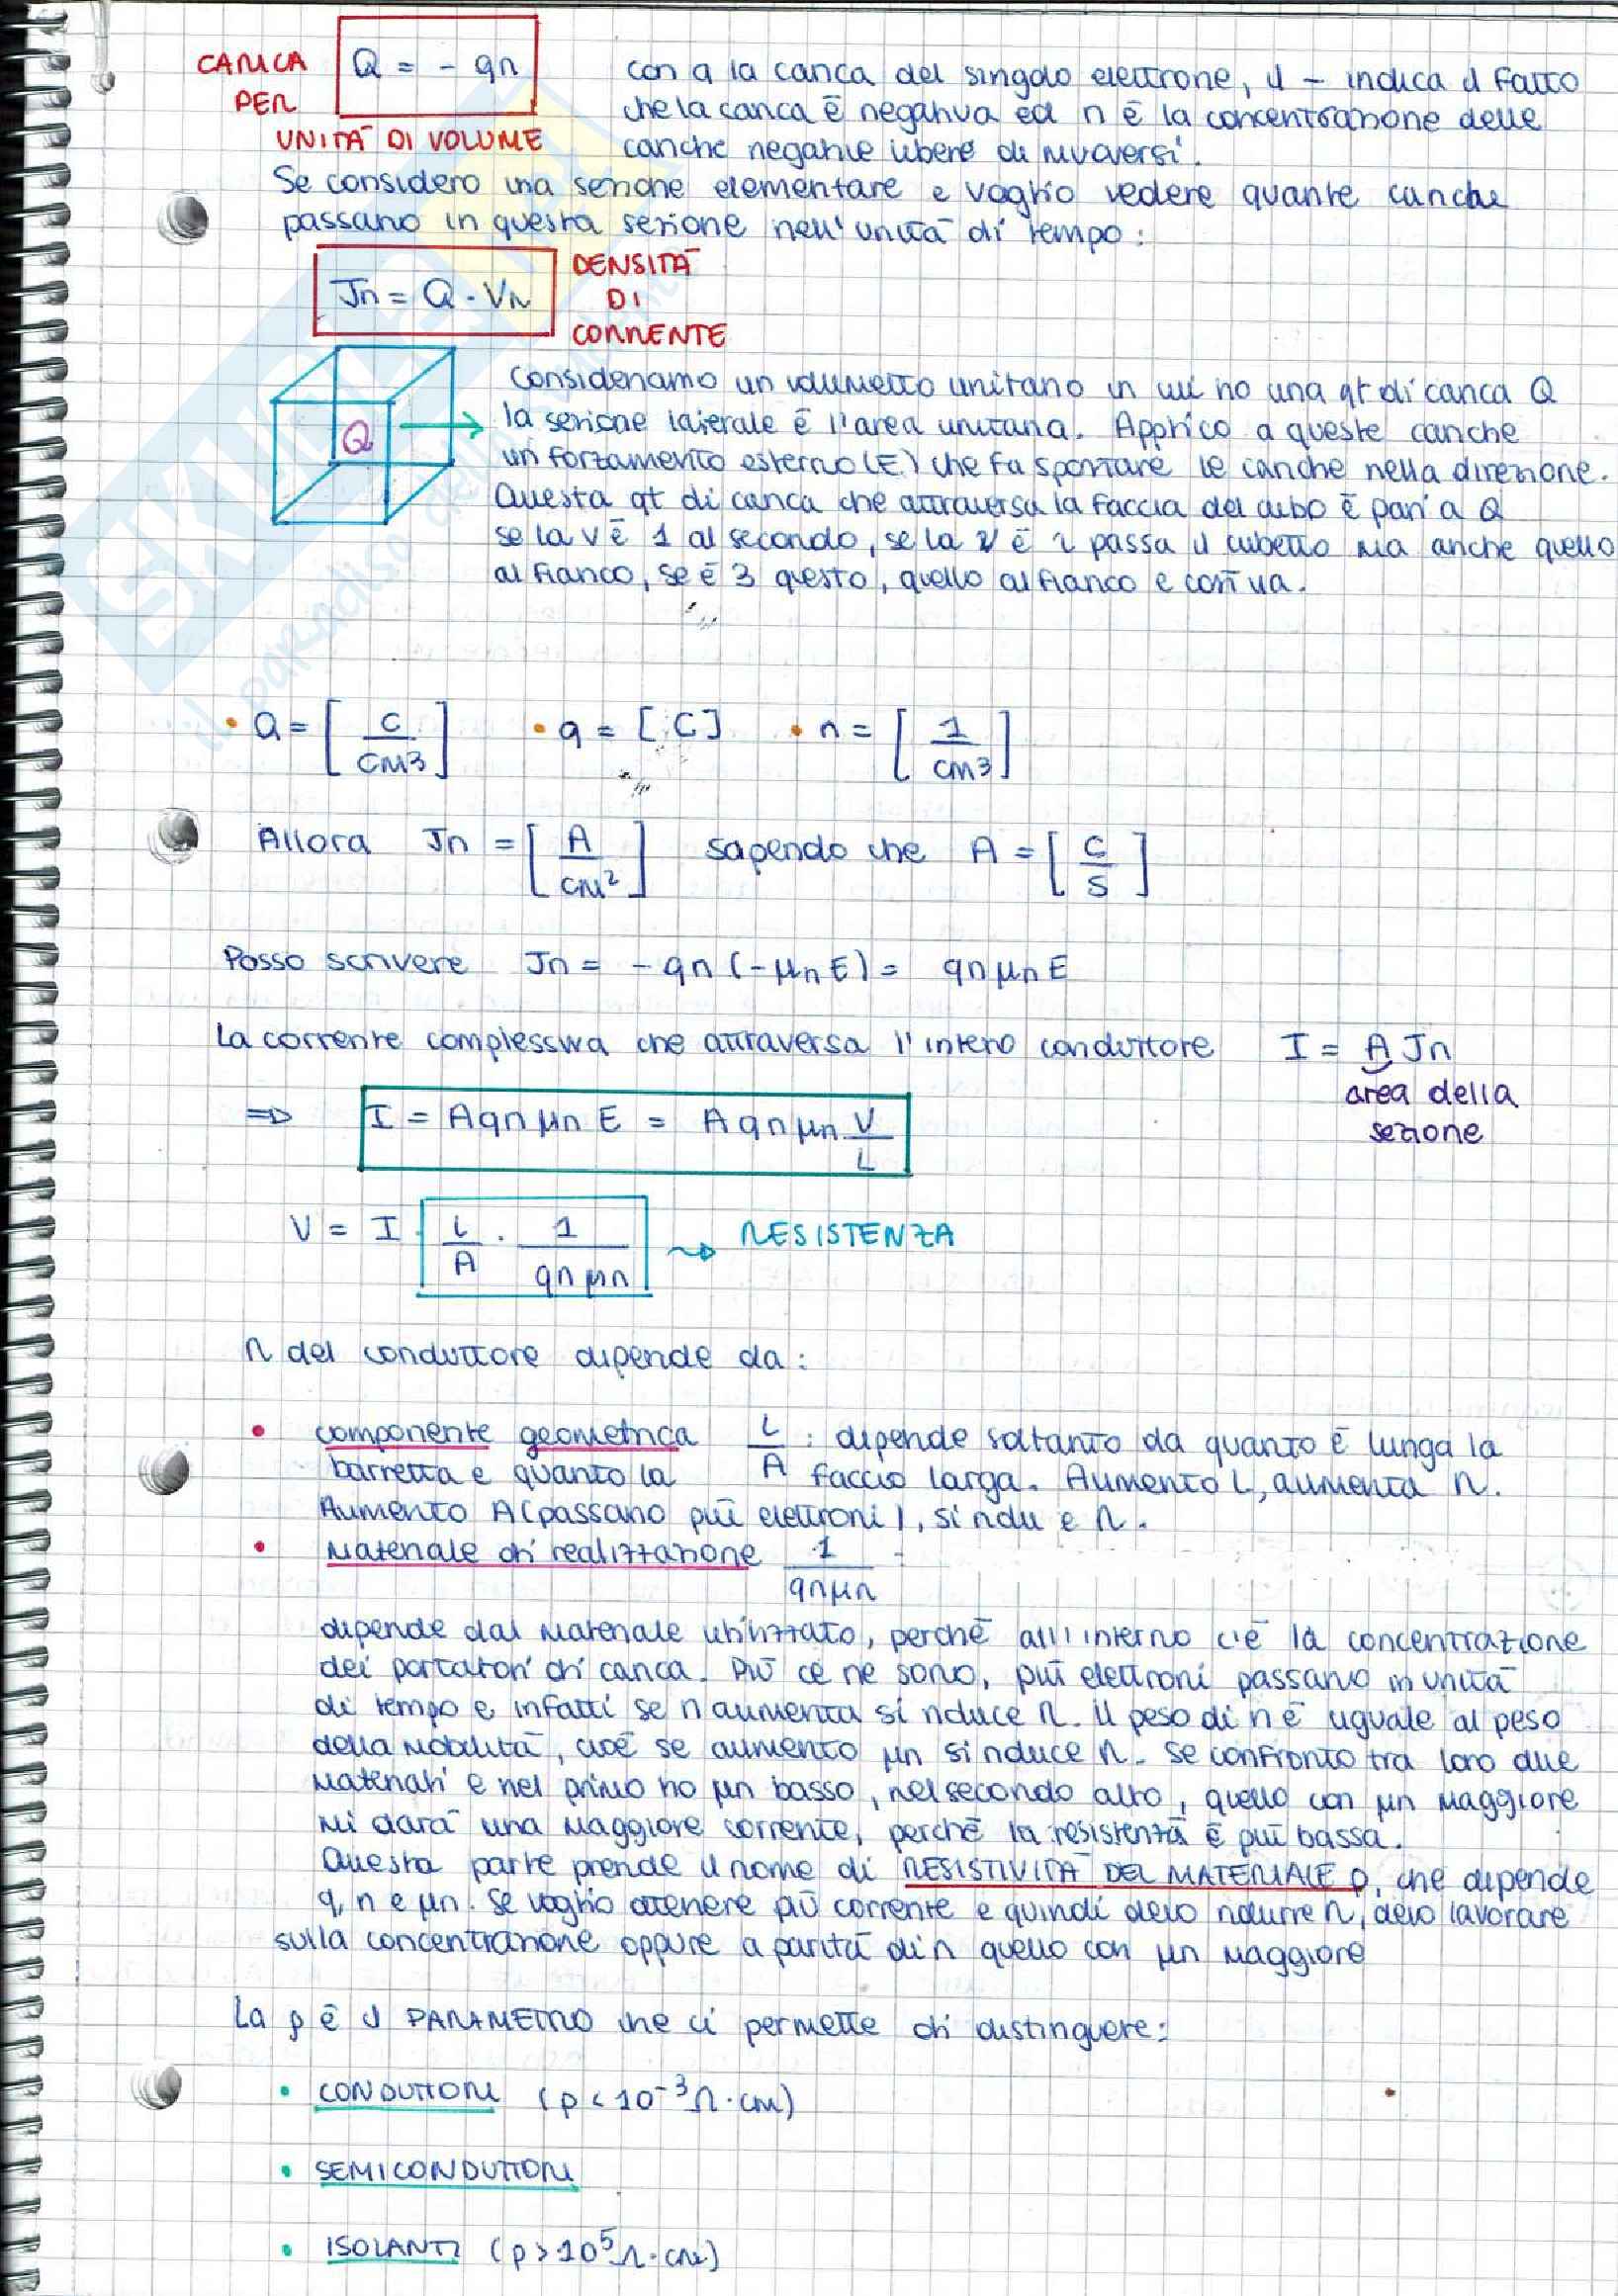 CARICA
PER
UNITÀ DI VOLUME
Q = - qn
con q la carica del singolo elettrone, il - indica il fatto
che la carica è negativa ed n è la concentrazione delle
cariche negative libere di muoversi.
Se considero una sezione elementare e voglio vedere quante cariche
passano in questa sezione nell'unità di tempo:
Jn = Q · Vn
DENSITÀ
DI
CORRENTE
Consideriamo un volumetto unitario in cui ho una qt di carica Q
Q
la sezione laterale è l'area unitaria. Applico a queste cariche
un forzamento esterno (E) che fa spostare le cariche nella direzione.
Questa qt di carica che attraversa la faccia del cubo è pari a Q
se la v è 1 al secondo, se la v è 2 passa il cubetto ma anche quello
al fianco, se è 3 questo, quello al fianco e così via.
• Q = [C/cm3] • q = [C] • n = [1/cm3]
Allora Jn = [A/cm²] sapendo che A = [C/S]
Posso scrivere Jn = - qn (-μn E) = qn μn E
La corrente complessiva che attraversa l'intero conduttore I = A Jn
area della
sezione
=> I = A qn μn E = A qn μn V/L
V = I L/A · 1/qn μn ~> RESISTENZA
R del conduttore dipende da:
• componente geometrica L/A : dipende soltanto da quanto è lunga la
barretta e quanto la faccio larga. Aumento L, aumenta R.
Aumento A (passano più elettroni), si riduce R.
• Materiale di realizzazione 1/qn μn
dipende dal materiale utilizzato, perchè all'interno c'è la concentrazione
dei portatori di carica. Più ce ne sono, più elettroni passano in unità
di tempo e infatti se n aumenta si riduce R. Il peso di n è uguale al peso
della mobilità, cioè se aumento μn si riduce R. Se confronto tra loro due
materiali e nel primo ho μn basso, nel secondo alto, quello con μn maggiore
mi darà una maggiore corrente, perchè la resistenza è più bassa.
Questa parte prende il nome di RESISTIVITÀ DEL MATERIALE ρ, che dipende
q, n e μn. Se voglio ottenere più corrente e quindi devo ridurre R, devo lavorare
sulla concentrazione oppure a parità di n quello con μn maggiore
La ρ è il PARAMETRO che ci permette di distinguere:
• CONDUTTORI (ρ < 10⁻³ Ω·cm)
• SEMICONDUTTORI
• ISOLANTI (ρ > 10⁵ Ω·cm)